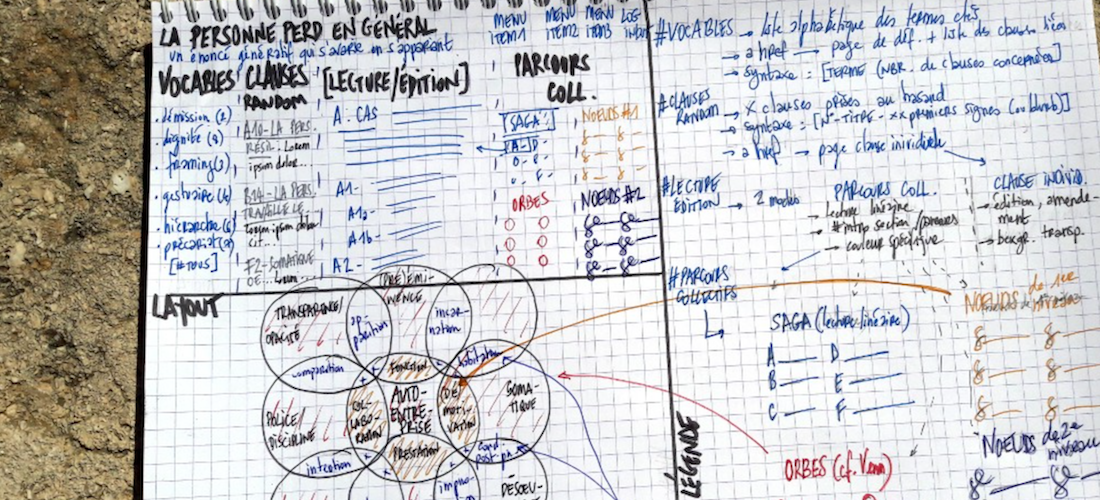 LA PERSONNE PERD EN GÉNÉRAL
un énoncé génératif qui s'avarie en s'apparant
MENU ITEM1
MENU ITEM2
MENU ITEM3
LOG-
VOCABLES
CLAUSES RANDOM
[LECTURE/ÉDITION]
PARCOURS COLL.
démission (2)
dignité (9)
framing (3)
gestuaire (6)
hiérarchie (6)
précariat (9)
[#TOUS]
A10-LA PERS.
RÉSIL. Lorem
ipsum dolor...
B14-LA PERS.
TRAVAILLE LE
lorem ipsum dolor
cit...
F2-SOMATIQUE
DE... Lorem
A - CAS
A1-
A1a-
A1b-
A2-
[SAGA]
A-D-
B-E-
C-F-
ORBES
NOEUDS #1
NOEUDS #2
LAYOUT
TRANSPARENCE/
OPACITÉ
ap-
parition
(PRÉ)ÉMI-
NENCE
incar-
nation
comparution
FONCTION
habitation
POLICE/
DISCIPLINE
COL-
LABO-
RATION
AUTO-
ENTRE-
PRISE
DÉ-
MOTI-
VATION
SOMA-
TIQUE
intention
PRESTATION
cond.
post-ph.
impro-
DÉSOEU-
#VOCABLES → liste alphabétique des termes clés
→ a href → page de déf. + liste des clauses liées
→ syntaxe = [TERME (NBR. de clauses concernées)]
#CLAUSES
RANDOM
→ X clauses prises au hasard
→ syntaxe = [N°-TITRE - XX premiers signes (ou blurb)]
→ a href → page clause individuelle
#LECTURE
ÉDITION → 2 modes
PARCOURS COLL.
→ lecture linéaire
→ #intro section/parcours
→ couleur spécifique
CLAUSE INDIVID.
→ édition, amende-
ment
→ backgr. transp.
#PARCOURS
COLLECTIFS
SAGA (lecture linéaire)
A D
B E
C F
NOEUDS de 1er
niveau
LÉGENDE
ORBES (cf. Venn)
NOEUDS de 2e
niveau